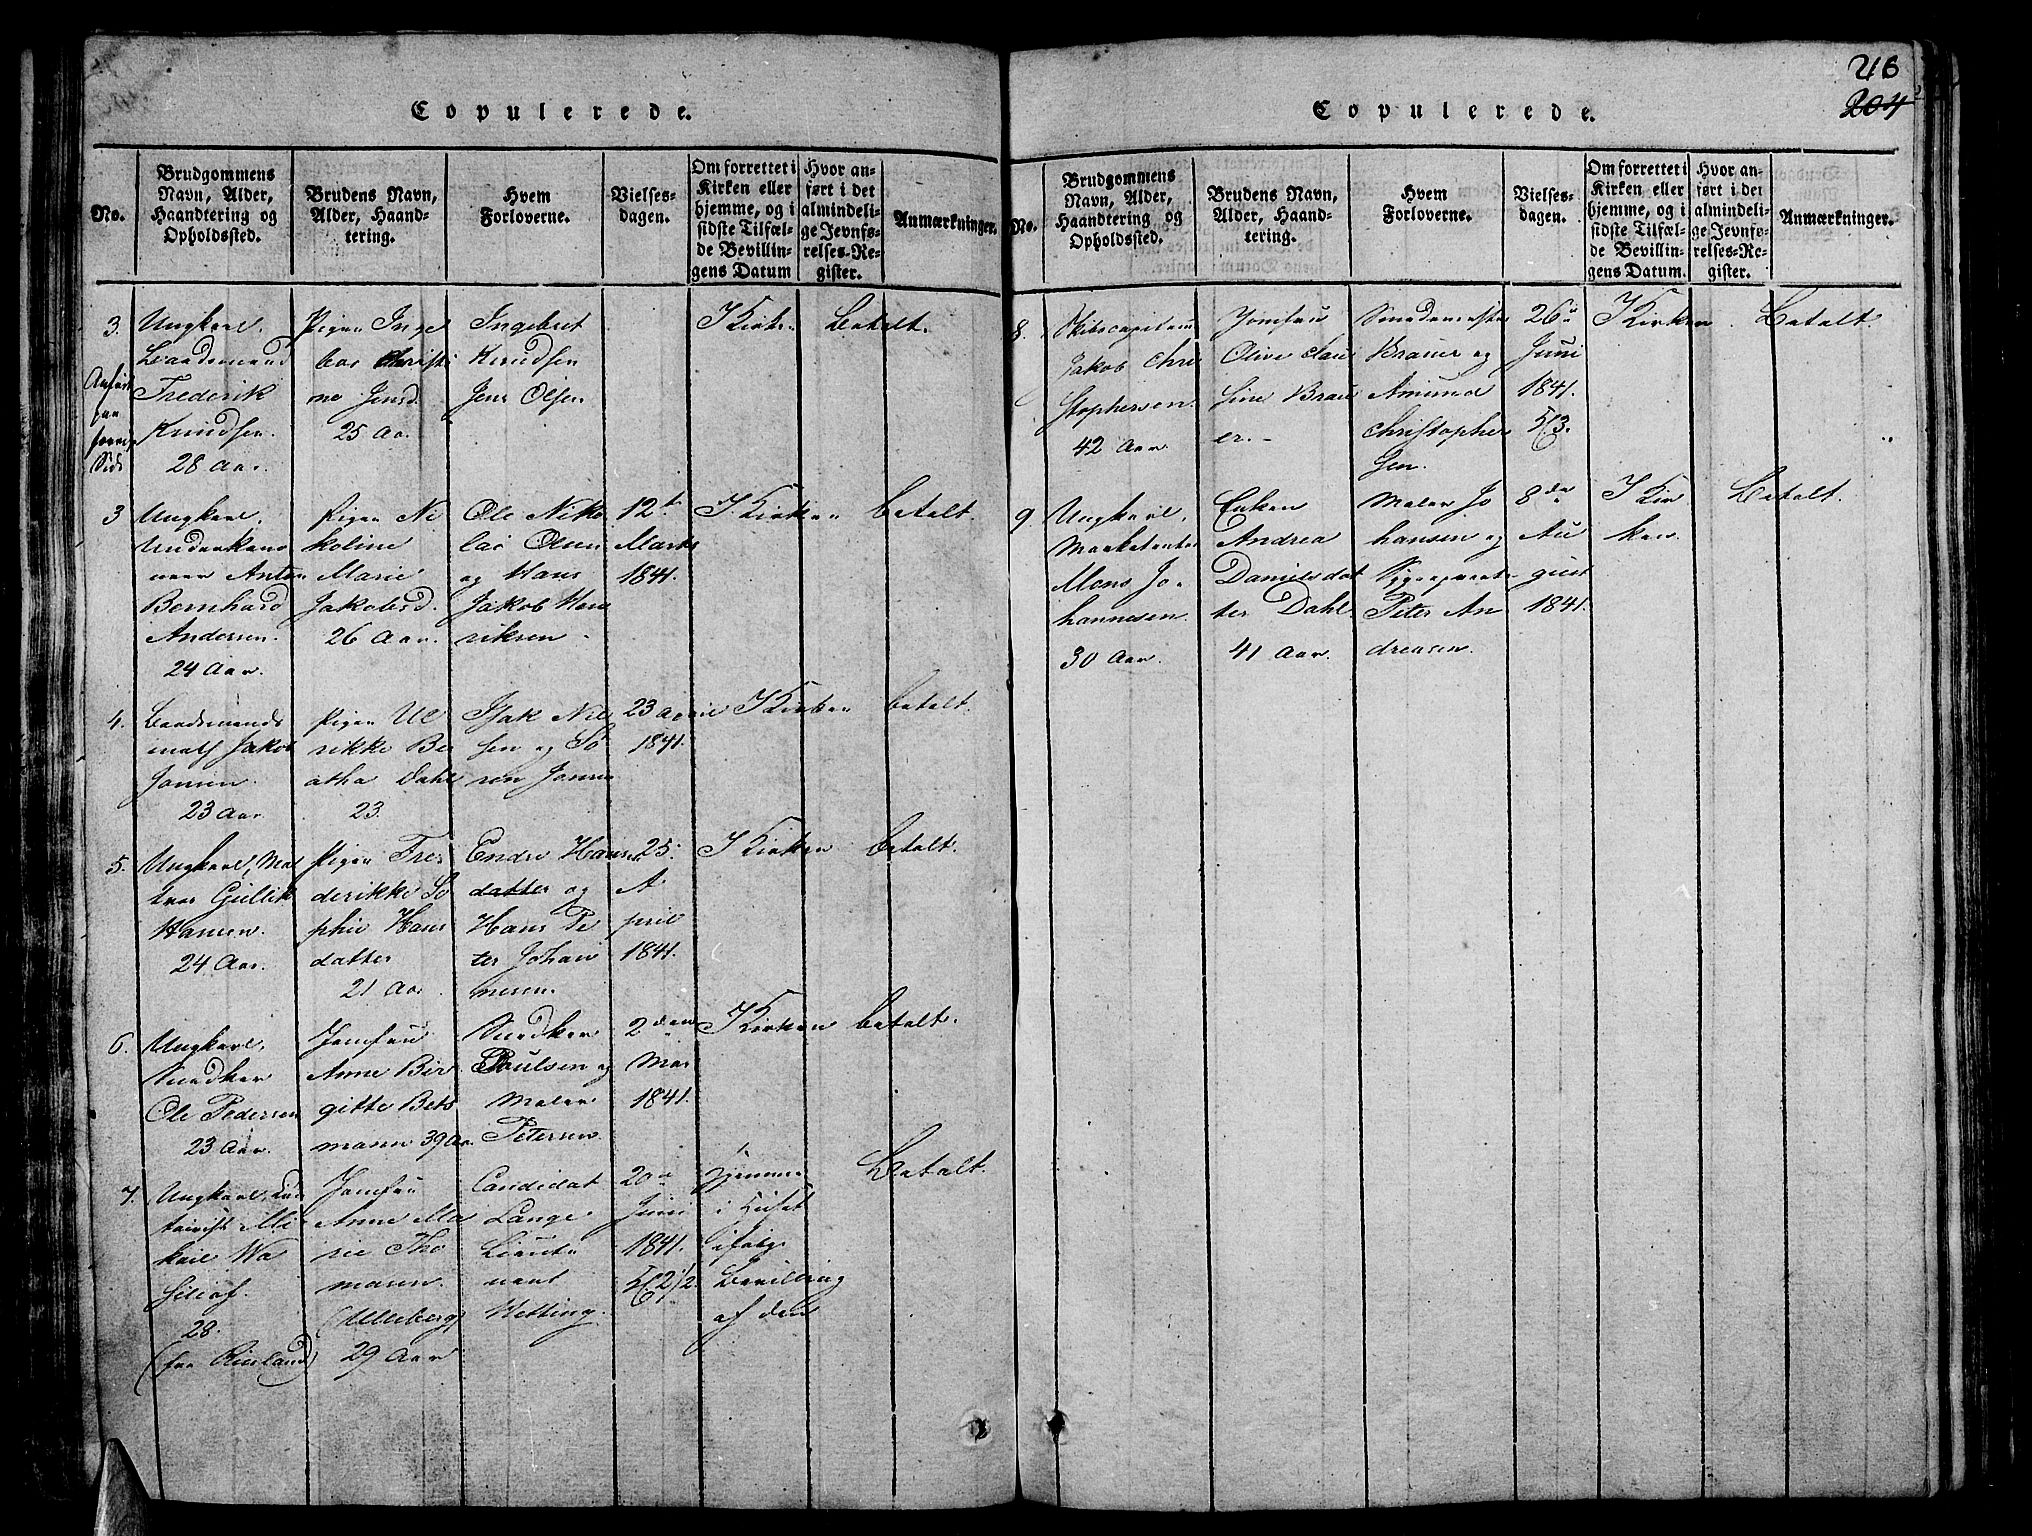 Copulerede.
No.
Brudgommens
Navn, Alder,
Haandtering og
Opholdssted.
Brudens Navn,
Alder, Haand-
tering.
Hvem
Forloverne.
Vielses-
dagen.
Om forrettet i
Kirken eller
hjemme, og i
sidste Tilfæl-
de Bevillin-
gens Datum
Hvor an-
ført i det
almindeli-
ge Jevnfø-
relses-Re-
gister.
Anmærkninger.
3.
Anført
paa
forrige
Side
Ungkarl,
Baadsmand
Frederik
Knudsen.
28 Aar.
Pigen Inge
bor Christi
ne Jensd.
25 Aa.
Ingebret
Knudsen
Jens Olsen
I Kirken
Betalt.
3
Ungkarl,
Underkano
neer Anton
Bernhard
Andersen.
24 Aar.
Pigen Ni
koline
Marie
Jakobsd.
26 Aar.
Ole Niko
lai Olsen
og Hans
Jakob Hen
riksen
12te
Marts
1841.
I Kirken
betalt.
4.
Baadsmands
mat Jakob
Jansen
23 Aar
Pigen Ul
rikke Be
atha Dahl
23.
Isak Niel
sen og Sö
ren Jansen
23 April
1841.
I Kirken
betalt.
5.
Ungkarl, Mat
tros Gullik
Hansen.
24 Aar.
Pigen Fre
derikke So
phie Hans
datter
21 Aar
Endre Hans
datter og
Hans Pe
ter Johan
nesen.
25.
A
pril
1841.
I Kirken
betalt.
6.
Ungkarl,
Snedker
Ole Pedersen
23 Aar.
Jomfru
Anne Bir
gitte Bets
mann 39 Aa.
Snedker
Poulsen og
Maler
Petersen
2den
Mai
1841.
I Kirken
betalt.
7.
Ungkarl,
Mi
kail Wa
siliof.
28.
(fra Rusland)
Jomfru
Anne Ma
rie Tho
masen.
(Ulleberg)
29 Aar
Candidat
Lange
Lieute
nant
Hetting.
20de
Juni
1841.
2 1/2.
hjemme
i Huset
ifølge
Bevilling
af den
Betalt.
216
204
Copulerede.
No.
Brudgommens
Navn, Alder,
Haandtering og
Opholdssted.
Brudens Navn,
Alder, Haand-
tering.
Hvem
Forloverne.
Vielses-
dagen.
Om forrettet i
Kirken eller
hjemme, og i
sidste Tilfæl-
de Bevillin-
gens Datum.
Hvor an-
ført i det
almindeli-
ge Jevnfø-
relses-Re-
gister.
Anmærkninger.
8.
Skibscapitain
Jakob Chri
stophersen.
42 Aar
Jomfru
Olive Clau
sine Brau
er.
Smedemester
Brauer og
Amund
Christopher
sen.
26de
Juni
1841.
3.
I Kirken
Betalt.
9.
Ungkarl,
Marketenter
Mons Jo
hannesen
30 Aar.
Enken
Andrea
Danielsdat
ter Dahl
41 Aar.
Maler Jo
hansen og
Peter An
dreasen.
8de
Au
gust
1841.
I Kir
ken
Betalt.